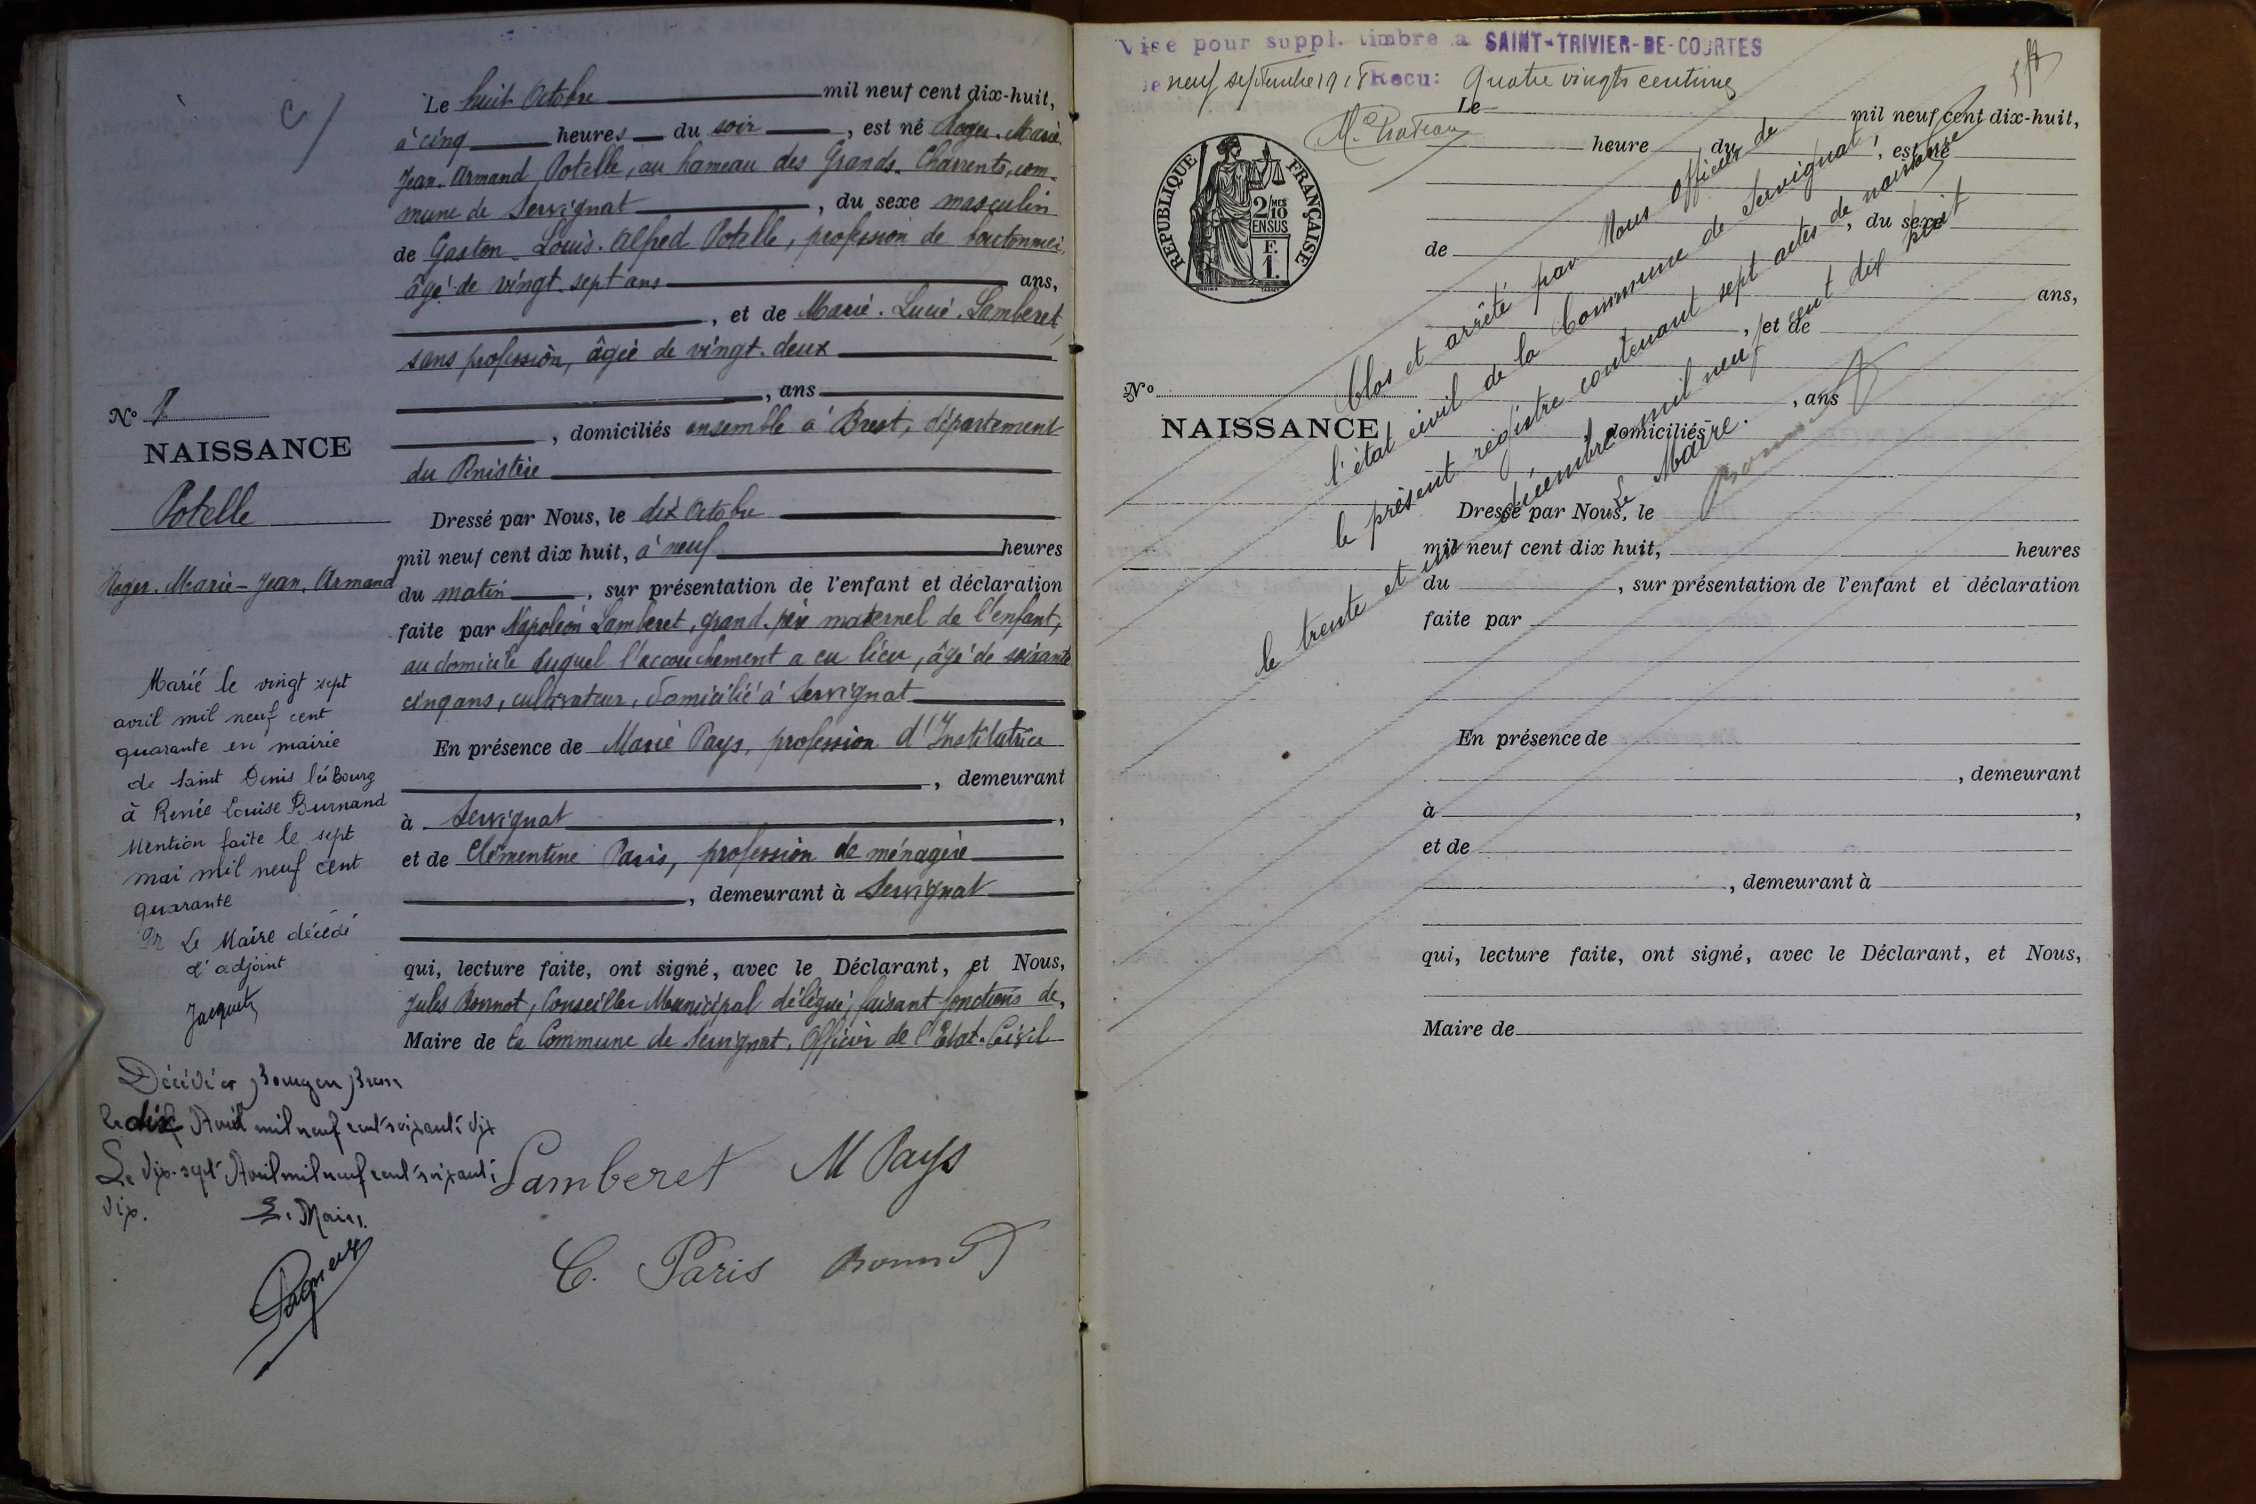 Le huit Octobre mil neuf cent dix-huit,
à cinq heures du soir, est né Roger. Marie.
Jean. Armand Potelle, au hameau des Grands. Charrents, com-
mune de Servignat, du sexe masculin
de Gaston. Louis. Alfred Potelle, profession de boutonnier,
âgé de vingt. sept ans ans,
, et de Marie. Lucie. Lamberet,
sans profession, âgée de vingt. deux
, ans
, domiciliés ensemble à Brest, département
du Finistère
Dressé par Nous, le dix Octobre
mil neuf cent dix huit, à neuf heures
du matin, sur présentation de l'enfant et déclaration
faite par Napoléon Lamberet, grand. père maternel de l'enfant,
au domicile duquel l'accouchement a eu lieu, âgé de soixante
cinq ans, cultivateur, domicilié à Servignat
En présence de Marie Pays, profession d'Institutrice
, demeurant
à Servignat,
et de Clémentine Paris, profession de ménagère
, demeurant à Servignat
qui, lecture faite, ont signé, avec le Déclarant, et Nous,
Jules Bonnot, Conseiller Municipal délégué, faisant fonctions de,
Maire de la Commune de Servignat. Officier de l'Etat. Civil
Lamberet M Pays
C. Paris Bonnot
N°
NAISSANCE
Potelle
Roger. Marie-Jean. Armand
Marié le vingt sept
avril mil neuf cent
quarante en mairie
de Saint Denis lès Bourg
à Renée Louise Burnand
Mention faite le sept
mai mil neuf cent
quarante
Pr Le Maire décédé
l'adjoint
Décédé à Bourg en Bresse
le dix Avril mil neuf cent soixante dix
Le dix-sept Avril mil neuf cent soixante
dix.
Le Maire.
Visé pour suppl. timbre a SAINT-TRIVIER-DE-COURTES
le neuf septembre 1918 Recu: quatre vingts centimes
REPUBLIQUE FRANÇAISE
2/10 MES
EN SUS
F.
1.
Le mil neuf cent dix-huit,
heure du, est né
, du sexe
de
ans,
, et de
, ans
N°
NAISSANCE
, domiciliés
Dressé par Nous, le
mil neuf cent dix huit, heures
du, sur présentation de l'enfant et déclaration
faite par
En présence de
, demeurant
à,
et de
, demeurant à
qui, lecture faite, ont signé, avec le Déclarant, et Nous,
Maire de
Clos et arrêté par Nous officier de
l'état civil de la Commune de Servignat
le présent registre contenant sept actes de naissance
le trente et un décembre mil neuf cent dix huit
Le Maire.
Bonnot